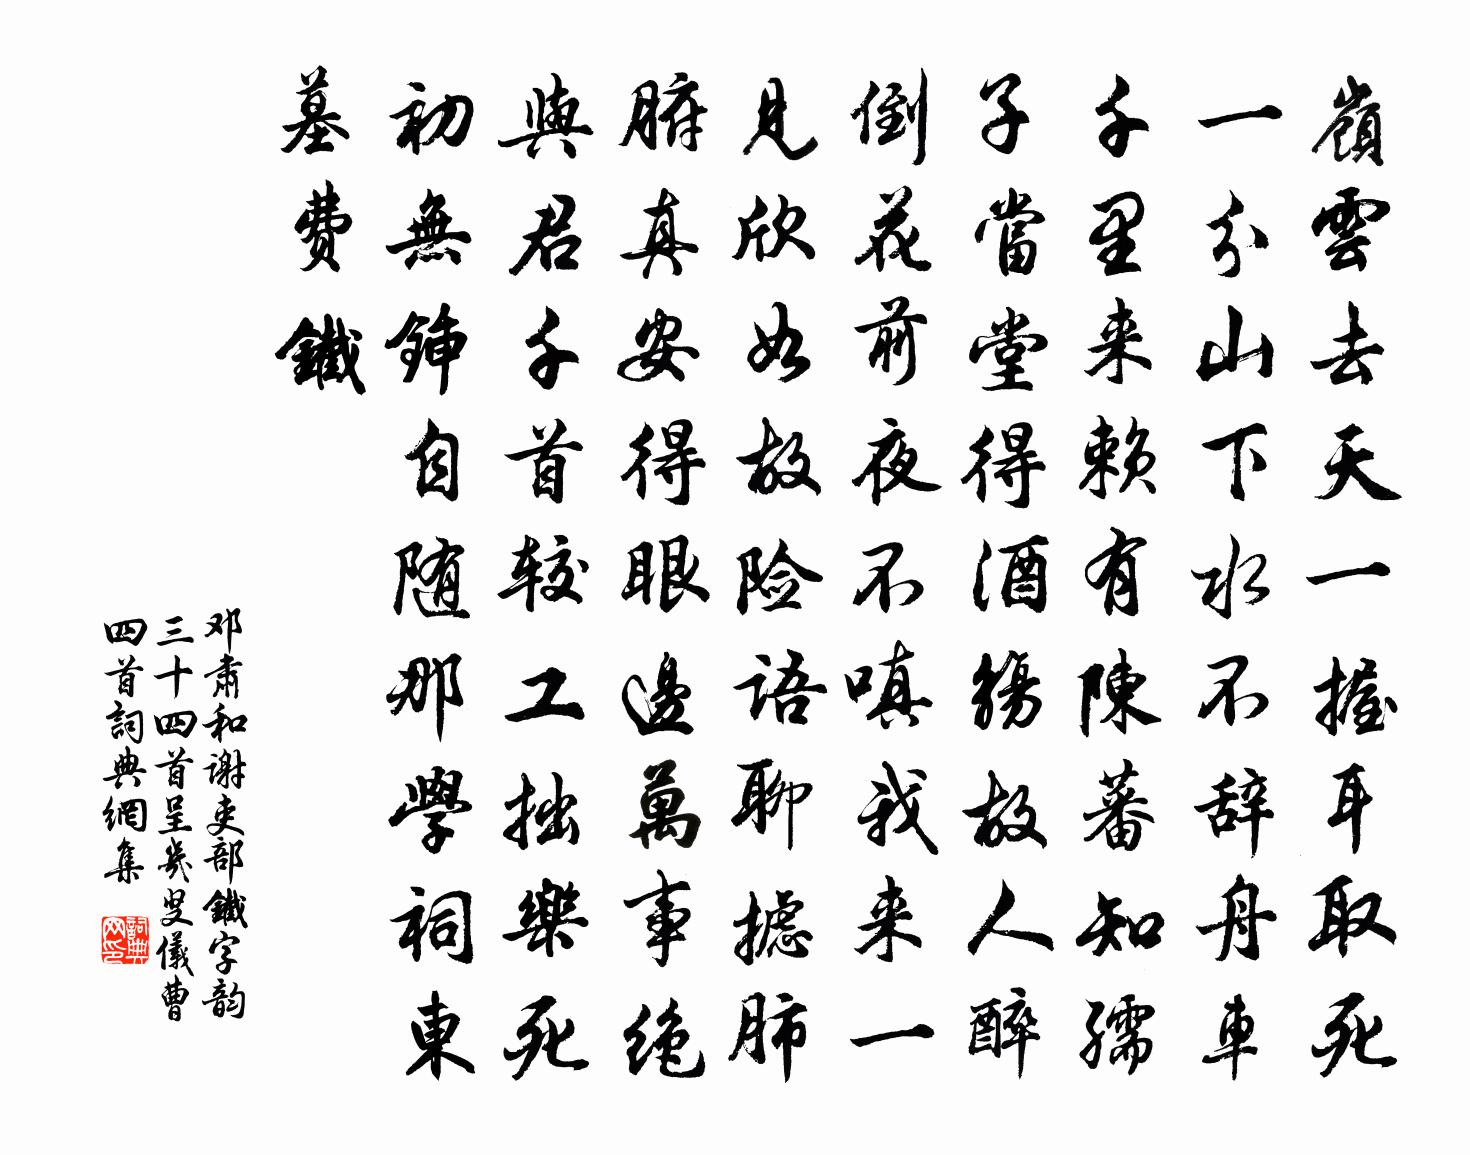 嶺雲去天一握耳取死
一分山下水不辞舟車
千里来赖有陳蕃知孺
子當堂得酒觴故人醉
倒花前夜不嗔我来一
見欣如故险語聊摅肺
腑真安得眼邊萬事绝
與君千首较工拙樂死
初無鍤自随那學祠東
墓费鐵
邓肃和谢吏部鐵字韵
三十四首呈幾叟儀曹
四首詞典網集
詞典网印